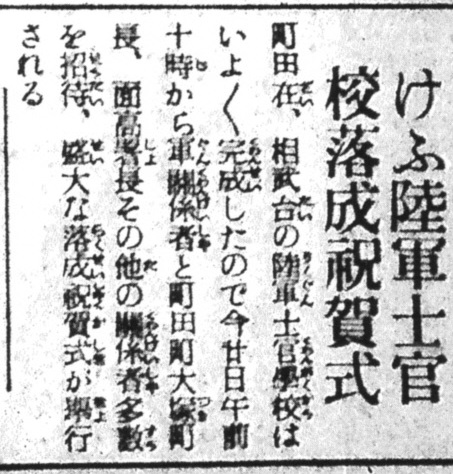 けふ陸軍士官
校落成祝賀式
町田在、相武台の陸軍士官學校は
いよ〱完成したので今廿日午前
十時から軍關係者と町田町大塚町
長、面高署長その他の關係者多數
を招待、盛大な落成祝賀式が擧行
される